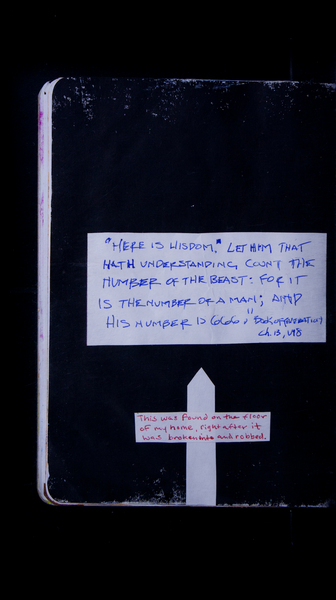 "HERE IS WISDOM." LET HIM THAT
HATH UNDERSTANDING COUNT THE
NUMBER OF THE BEAST: FOR IT
IS THE NUMBER OF A MAN; AND
HIS NUMBER IS 666." BOOK OF REVELATION
Ch. 13, V18
This was found on the floor
of my home, right after it
was broken into and robbed.